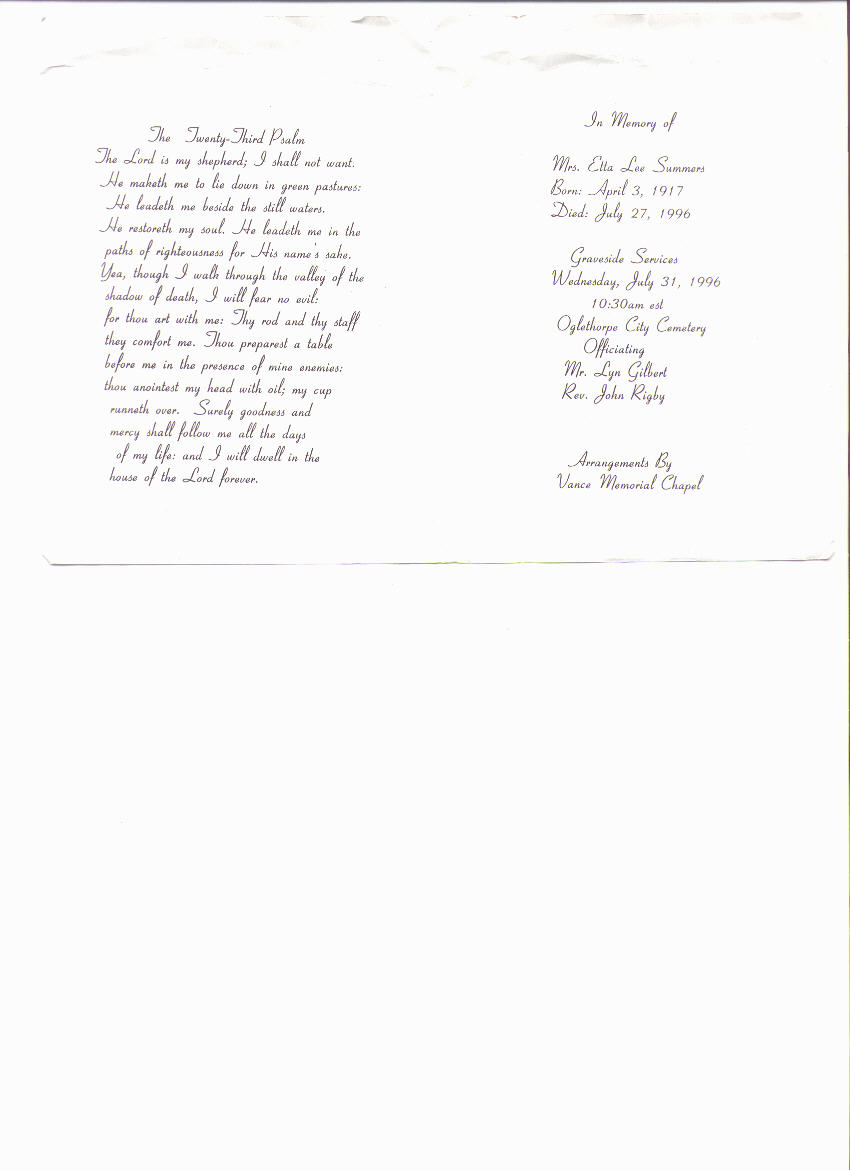 The Twenty-Third Psalm
The Lord is my shepherd; I shall not want.
He maketh me to lie down in green pastures:
He leadeth me beside the still waters.
He restoreth my soul. He leadeth me in the
paths of righteousness for His name's sake.
Yea, though I walk through the valley of the
shadow of death, I will fear no evil:
for thou art with me: Thy rod and thy staff
they comfort me. Thou preparest a table
before me in the presence of mine enemies:
thou anointest my head with oil; my cup
runneth over. Surely goodness and
mercy shall follow me all the days
of my life: and I will dwell in the
house of the Lord forever.
In Memory of
Mrs. Etta Lee Summers
Born: April 3, 1917
Died: July 27, 1996
Graveside Services
Wednesday, July 31, 1996
10:30am est
Oglethorpe City Cemetery
Officiating
Mr. Lyn Gilbert
Rev. John Rigby
Arrangements By
Vance Memorial Chapel